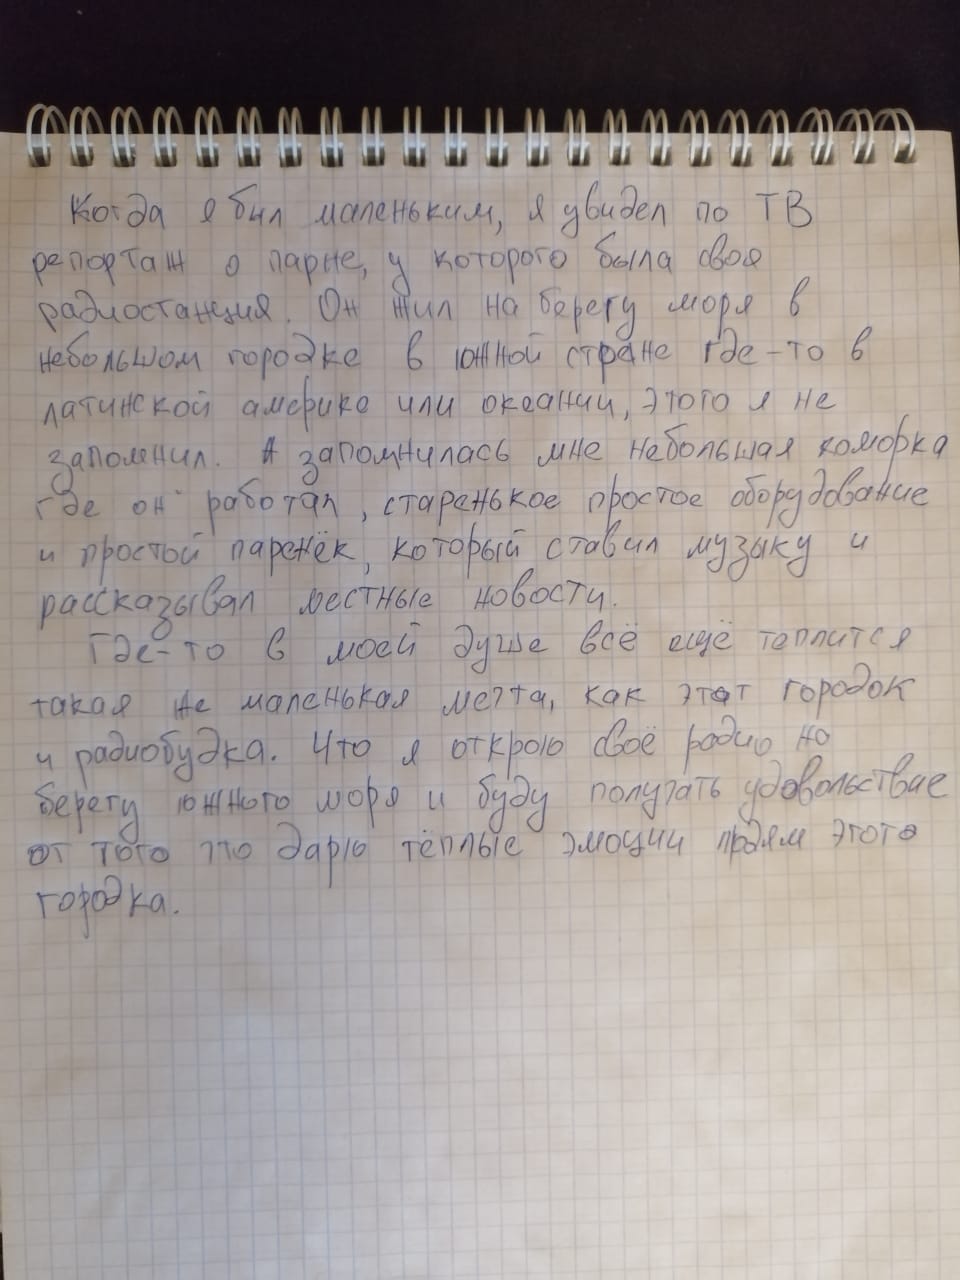 Когда я был маленьким, я увидел по ТВ
репортаж о парне, у которого была своя
радиостанция. Он жил на берегу моря в
небольшом городке в южной стране где-то в
латинской америке или океании, этого я не
запомнил. А запомнилась мне небольшая коморка
где он работал, старенькое простое оборудование
и простой паренёк, который ставил музыку и
рассказывал местные новости.
Где-то в моей душе всё ещё теплится
такая же маленькая мечта, как этот городок
и радиобудка. Что я открою своё радио на
берегу южного моря и буду получать удовольствие
от того что дарю тёплые эмоции людям этого
городка.